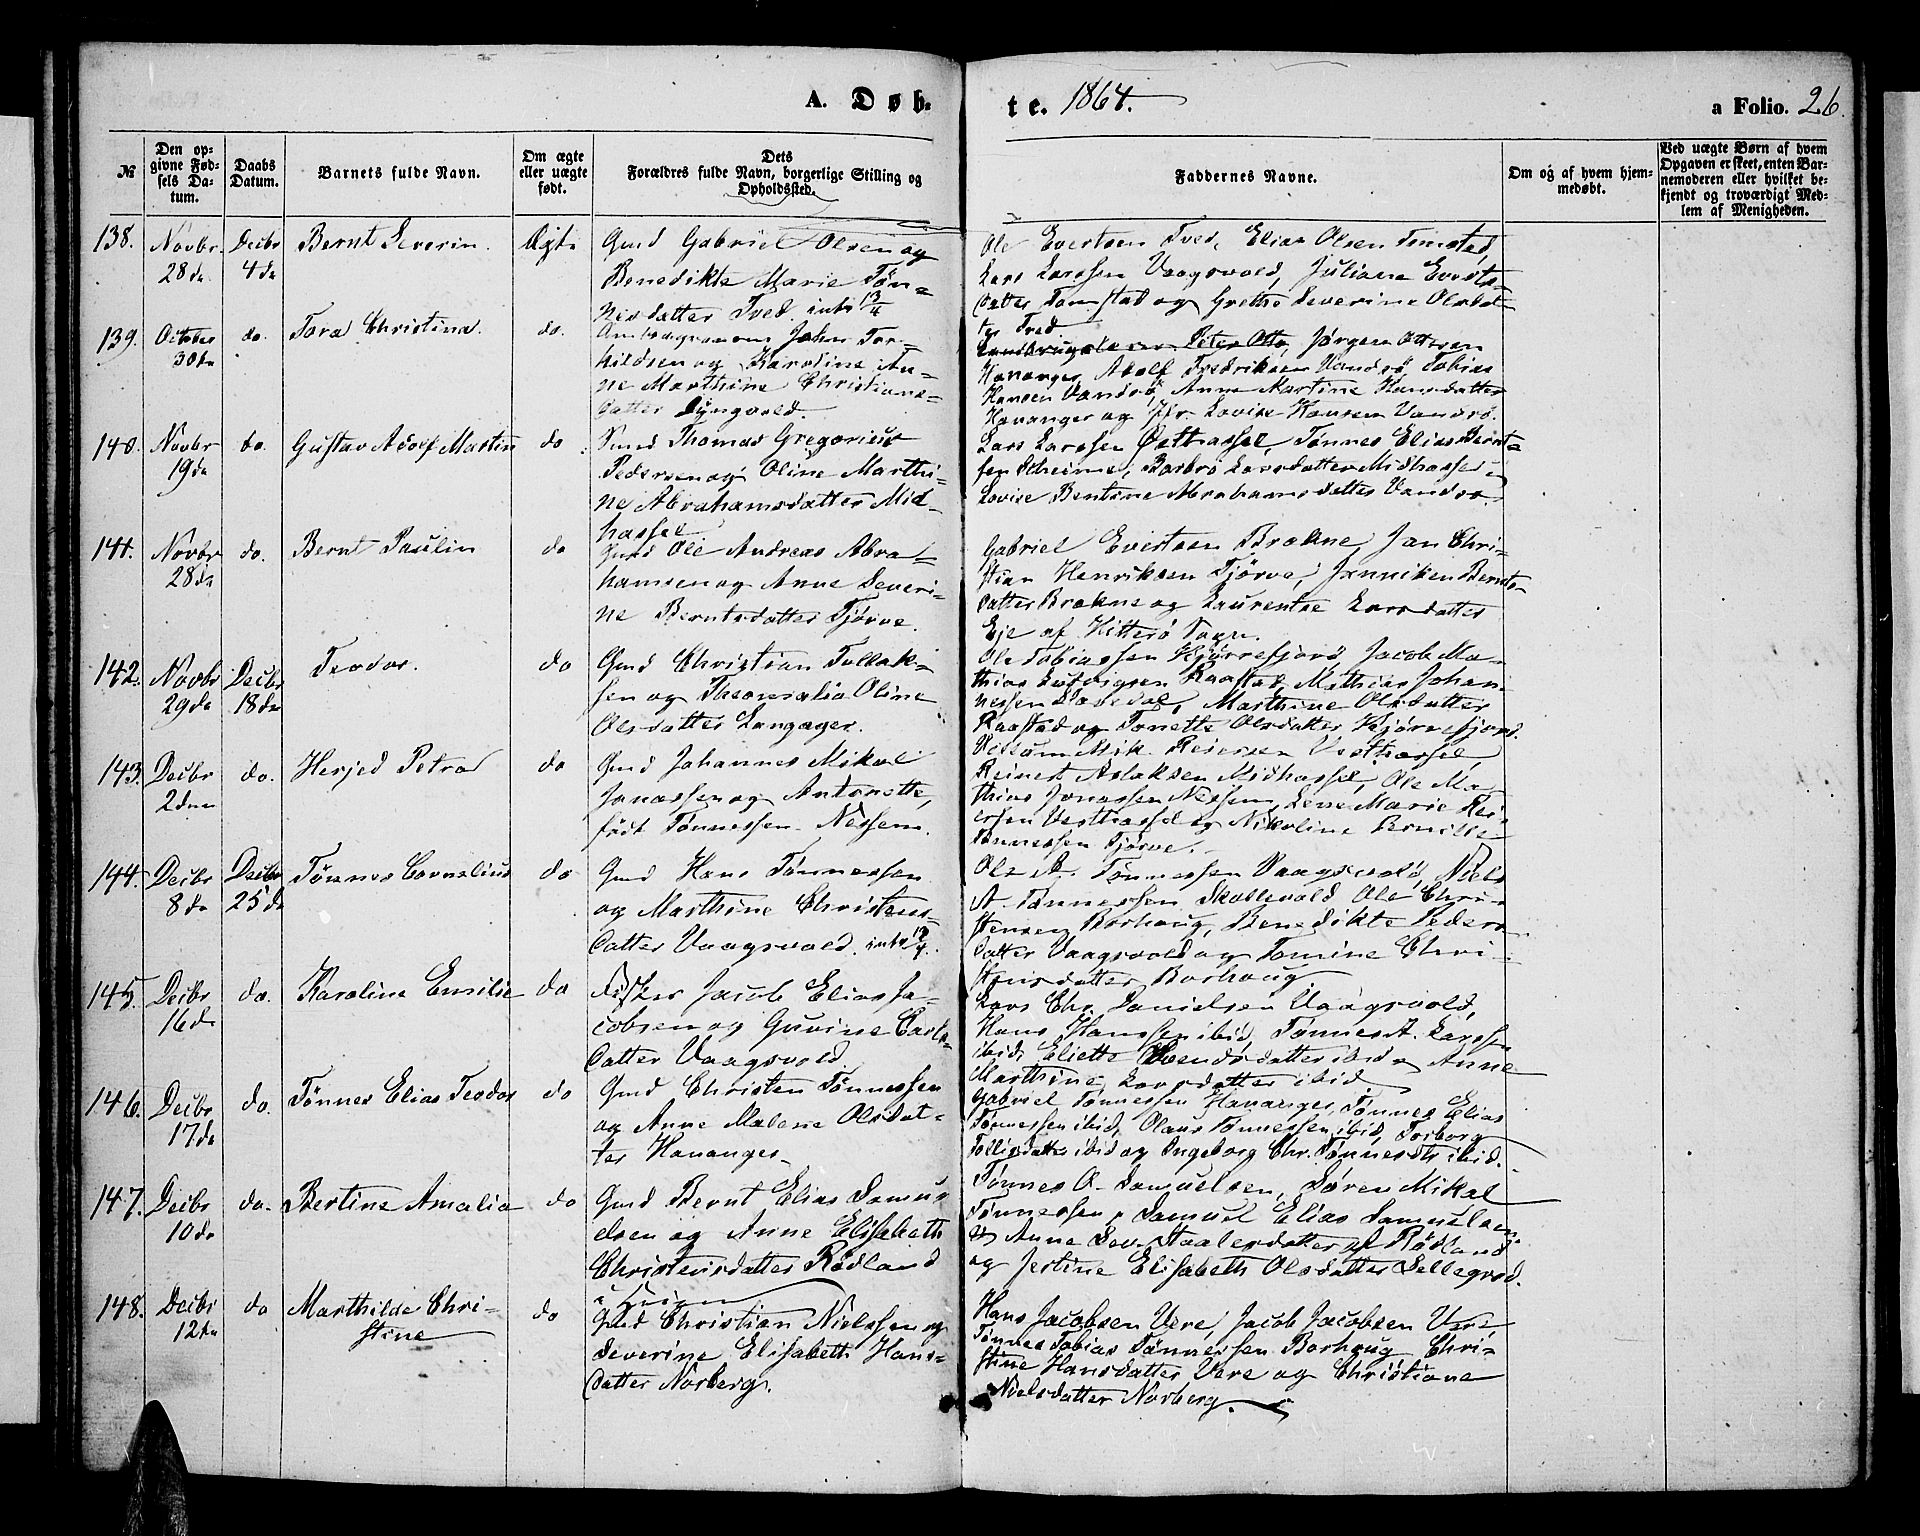 A. Døb-
te. 1864.
a Folio. 26.
№
Den op-
givne Fød-
sels Da-
tum.
Daabs
Datum.
Barnets fulde Navn.
Om ægte
eller uægte
født.
Dets
Forældres fulde Navn, borgerlige Stilling og
Opholdssted.
Faddernes Navne.
Om og af hvem hjem-
medøbt.
Ved uægte Børn af hvem
Opgaven er skeet, enten Bar-
nemoderen eller hvilket be-
kjendt og troværdigt Med-
lem af Menigheden.
138.
Novbr
28de
Decbr
4de
Bernt Severin.
Ægte
Gmd Gabriel Olsen og
Benedikte Marie Tøn-
nesdatter Tved.
Ole Evertsen Tved, Elias Olsen Tomstad,
Lars Larssen Vaagsvold, Juliane Everts-
datter Tomstad og Grethe Severine Olsdat-
ter Tved
139.
October
30te
do.
Tora Christina.
do.
John Tor-
kildsen og Karoline An-
ne Marthine Christians-
datter Lyngvold.
Peter Otto, Jørgen Ottesen
Hananger, Adolf Fredriksen Vandsø, Tobias
Hansen Vandsø, Anne Martine Hansdatter
Hananger og Jfr. Lovise Hansen Vandsø.
140.
Novbr
19de
do.
Gustav Adolf Martin
do
Thomas Gregorius
Pedersen og Oline Marthi-
ne Abrahamsdatter Mid-
hassel
Lars Larssen Østhassel, Tønnes Elias Bernt-
sen Skeime, Barbro Larsdatter Midhassel
Lovise Bentine Abrahamsdatter Vandsø
141.
Novbr
28de
do.
Bernt Paulin
do
Gmd Ole Andreas Abra-
hamsen og Anne Severi-
ne Berntsdatter Tjørve.
Gabriel Evertsen Brekne, Jan Chri-
stian Henriksen Tjørve, Janniken Bernts-
datter Brekne og Laurentse Larsdatter
Eje af Hitterø Sogn.
142.
Novbr
29de
Decbr
18de
Teodor.
do
Gmd Christian Tollak-
sen og Theonalia Oline
Olsdatter Langager.
Ole Tobiassen Kjørrefjord, Jacob Ma-
thias Ludvigsen Raastad, Mathias Johan-
nessen, Marthine Olsdatter
Raastad og Tonette Olsdatter Kjørrefjord.
143.
Decbr
2den
do.
Herjed Petra
do
Gmd Johannes Mikal
Jonassen og Antonette,
født Tønnessen Nessem.
Reiersen Vesthassel,
Reinert Aslaksen Midhassel, Ole Ma-
thias Jonassen Nessem, Lene Marie Rei-
ersen Vesthassel og Nikoline Pernille
Tønnessen Tjørve.
144.
Decbr
8de
Decbr
25de
Tønnes Cornelius
do
Gmd Hans Tønnessen
og Marthine Christens-
datter Vaagsvold.
Ole A. Tønnessen Vaagsvold, Niels
A. Tønnessen Skollevold Ole Chri-
stensen Borhaug, Benedikte Peders-
datter Vaagsvold og Tomine Chri-
stensdatter Borhaug
145.
Decbr
16de
do.
Karoline Emilie
do
Fisker Jacob Elias Ja-
cobsen og Guvine Carls-
datter Vaagsvold
Lars Chr. Danielsen Vaagsvold,
Hans Hanssen ibid, Tønnes A. Larssen
ibid, Eliette Svendsdatter ibid og Anne
Marthine Larsdatter ibid
146.
Decbr
17de
do.
Tønnes Elias Teodor
do
Gmd Christen Tønnessen
og Anne Malene Olsdat-
ter Hananger
Gabriel Tønnessen Hananger, Tønnes Elias
Tønnessen ibid, Olaus Tønnessen ibid, Torborg
ibid og Ingeborg Chr. Tønnesdtr ibid.
147.
Decbr
10de
do.
Bertine Amalia
do
Gmd Bernt Elias Samu-
elsen og Anne Elisabeth
Christensdatter Rødland
Tønnes O. Samuelsen, Søren Mikal
Tønnessen, Samuel Elias Samuelsen
Anne Sev. Staalesdatter af Rødland
og Jertine Elisabeth Olsdatter Sellegrod.
148.
Decbr
12te
do
Marthilde Chri-
stine
do
Gmd Christian Nielssen og
Severine Elisabeth Hans-
datter Norberg.
Hans Jacobsen Vere, Jacob Jacobsen Vere
Tønnes Tobias Tønnessen Borhaug Chri-
stine Hansdatter Vere og Christiane
Nielsdatter Norberg.